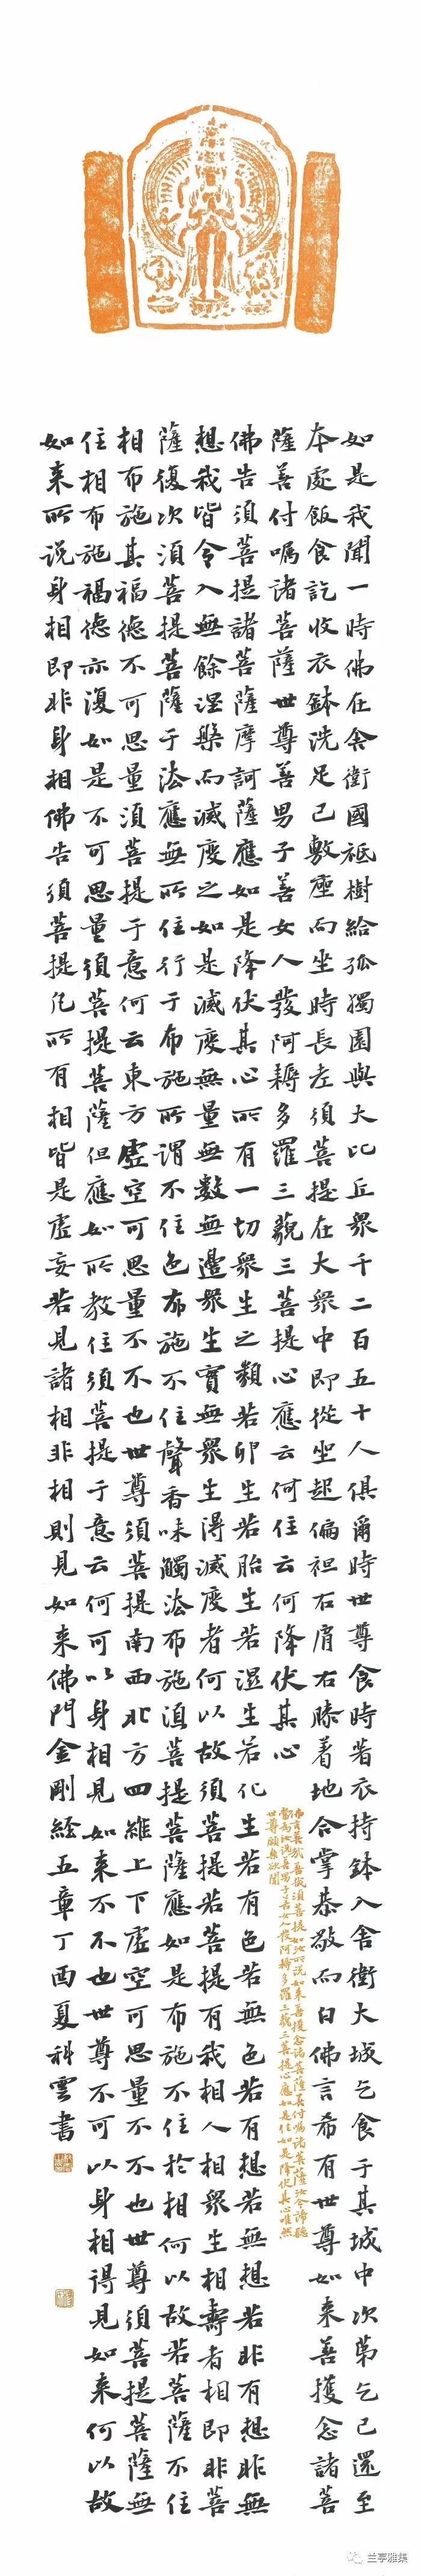 如是我聞一時佛在舍衛國祇樹給孤獨園與大比丘衆千二百五十人俱爾時世尊食時著衣持鉢入舍衛大城乞食于其城中次第乞已還至
本處飯食訖收衣鉢洗足已敷座而坐時長老須菩提在大衆中即從坐起偏袒右肩右膝著地合掌恭敬而白佛言希有世尊如來善護念諸菩
薩善付囑諸菩薩世尊善男子善女人發阿耨多羅三藐三菩提心應云何住云何降伏其心
佛言善哉善哉須菩提如汝所說如來善護念諸菩薩善付囑諸菩薩汝今諦聽
當為汝說善男子善女人發阿耨多羅三藐三菩提心應如是住如是降伏其心唯然
世尊願樂欲聞
佛告須菩提諸菩薩摩訶薩應如是降伏其心所有一切衆生之類若卵生若胎生若濕生若化生若有色若無色若有想若無想若非有想非無
想我皆令入無餘涅槃而滅度之如是滅度無量無數無邊衆生實無衆生得滅度者何以故須菩提若菩提有我相人相衆生相壽者相即非菩
薩復次須菩提菩薩于法應無所住行于布施所謂不住色布施不住聲香味觸法布施須菩提菩薩應如是布施不住於相何以故若菩薩不住
相布施其福德不可思量須菩提于意何云東方虛空可思量不不也世尊須菩提南西北方四維上下虛空可思量不不也世尊須菩提菩薩無
住相布施福德亦復如是不可思量須菩提菩薩但應如所教住須菩提于意云何可以身相見如來不不也世尊不可以身相得見如來何以故
如來所說身相即非身相佛告須菩提凡所有相皆是虛妄若見諸相非相則見如來佛門金剛經五章丁酉夏科雲書
兰亭雅集